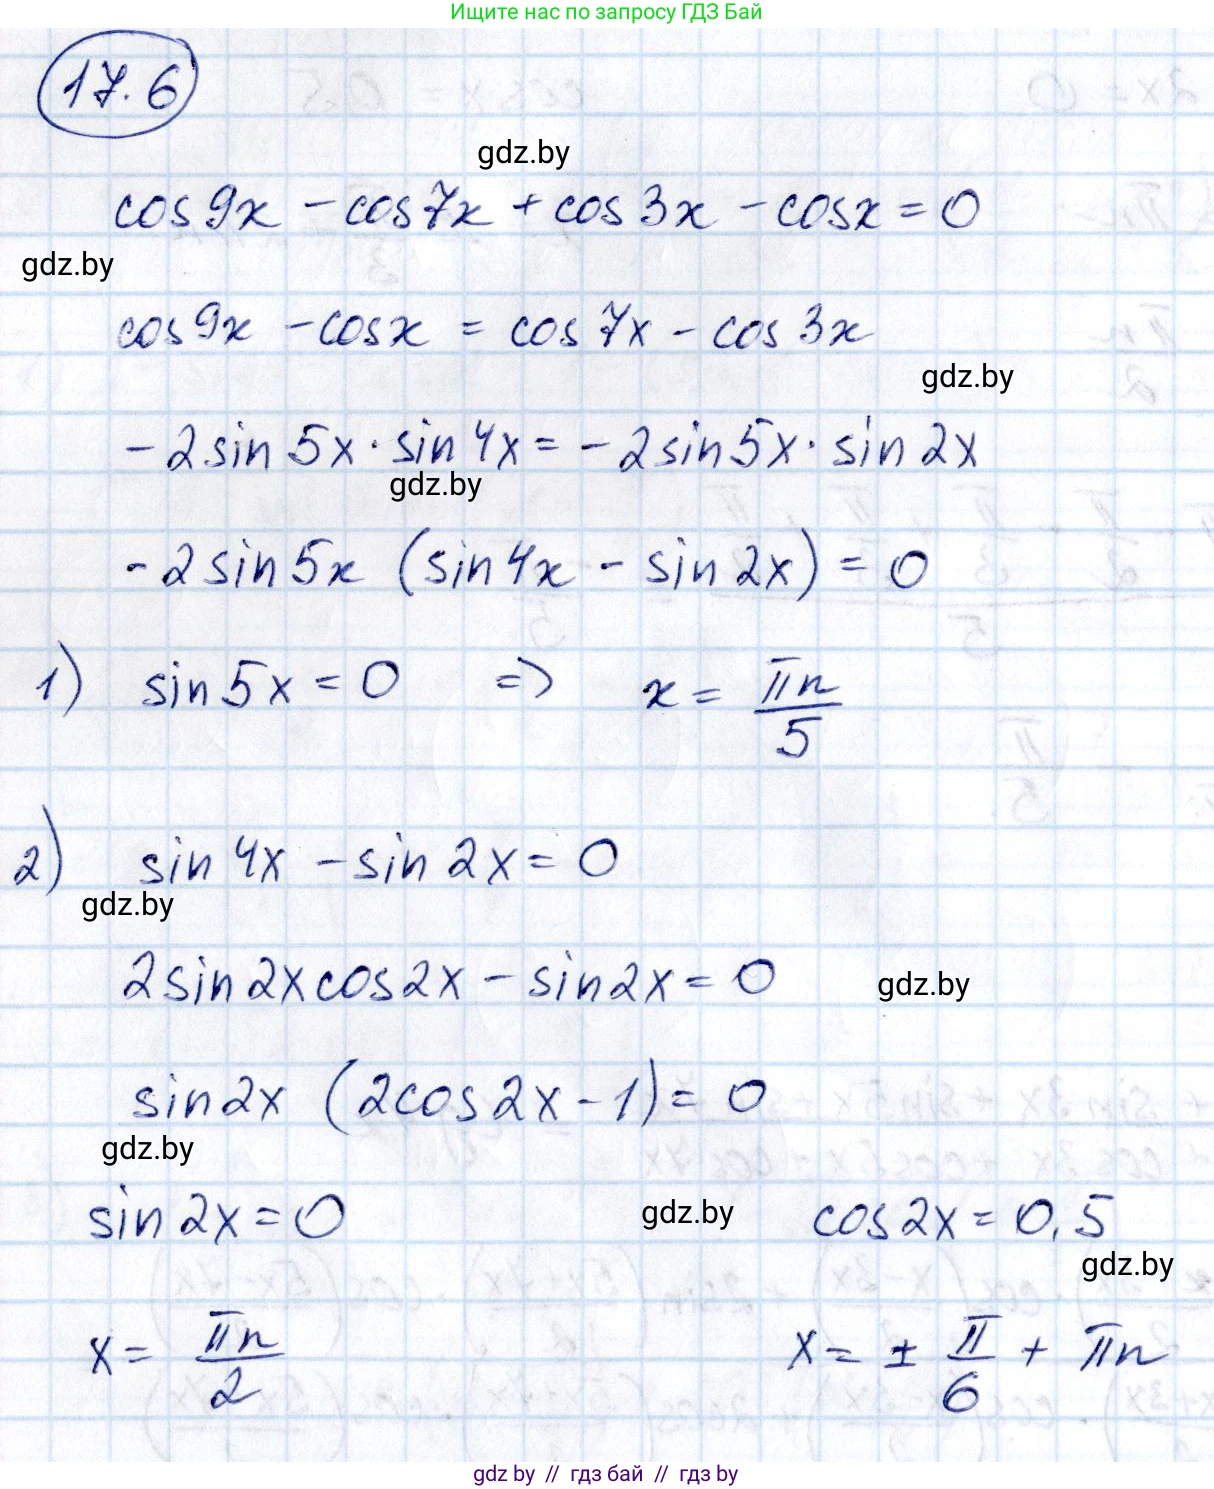 Ищите нас по запросу ГДЗ Бай
17.6
gdz.by
cos9x - cos7x + cos3x - cosx = 0
gdz.by
cos9x - cosx = cos7x - cos3x
gdz.by
-2sin5x · sin4x = -2sin5x · sin2x
gdz.by
-2sin5x (sin4x - sin2x) = 0
1) sin5x = 0 => x = πn/5
2) sin4x - sin2x = 0
gdz.by
2sin2xcos2x - sin2x = 0
gdz.by
sin2x (2cos2x - 1) = 0
gdz.by
sin2x = 0 gdz.by cos2x = 0,5
gdz.by
x = πn/2 x = ± π/6 + πn
gdz by // гдз бай // гдз by